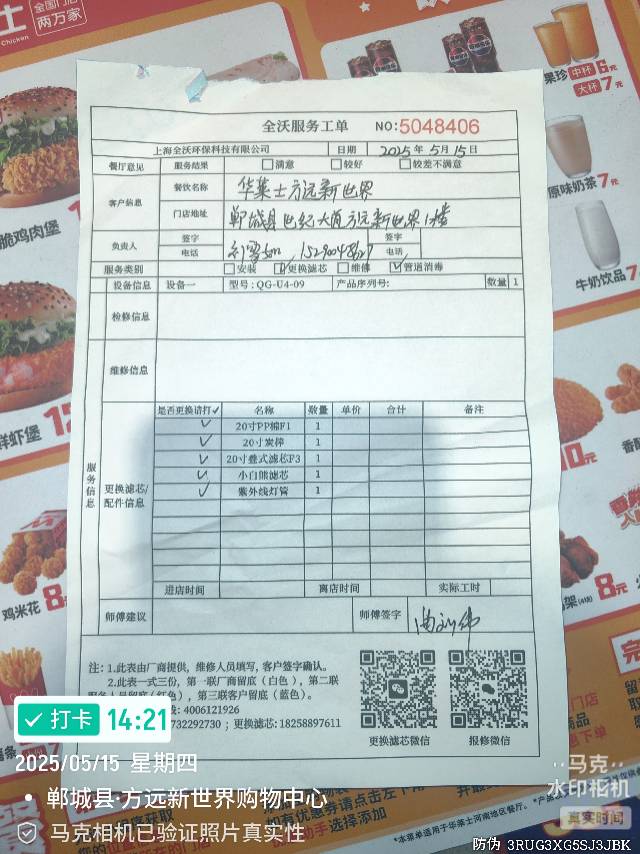 士
全国门店
两万家
Chicken
果珍 中杯6元
大杯7元
原味奶茶7元
牛奶饮品7元
脆鸡肉堡
鲜虾堡
12
10元
鸡米花 8
8元
全沃服务工单 NO:5048406
上海全沃环保科技有限公司 日期 2025年5月15日
餐厅意见 服务结果 满意 较好 较差不满意
客户信息 餐饮名称 华莱士方远新世界
门店地址 郸城县世纪大道方远新世界1楼
负责人 签字 签字
电话 电话
服务类别 安装 更换滤芯 维修 管道消毒
设备信息 设备一 型号:QG-U4-09 产品序列号: 数量 1
检修信息
维修信息
服务信息
更换滤芯/配件信息
是否更换请打✓ 名称 数量 单价 合计 备注
✓ 20寸PP棉F1 1
✓ 20寸炭棒 1
✓ 20寸叠式滤芯F3 1
✓ 小白熊滤芯 1
✓ 紫外线灯管 1
进店时间 离店时间 实际工时
师傅建议 师傅签字
注:1.此表由厂商提供,维修人员填写,客户签字确认。
2.此表一式三份,第一联厂商留底(白色),第二联
服务人员留底(红色),第三联客户留底(蓝色)。
4006121926
732292730;更换滤芯:18258897611
更换滤芯微信 报修微信
打卡 14:21
2025/05/15 星期四
郸城县·方远新世界购物中心
马克相机已验证照片真实性
马克
水印相机
真实时间
防伪 3RUG3XG5SJ3JBK